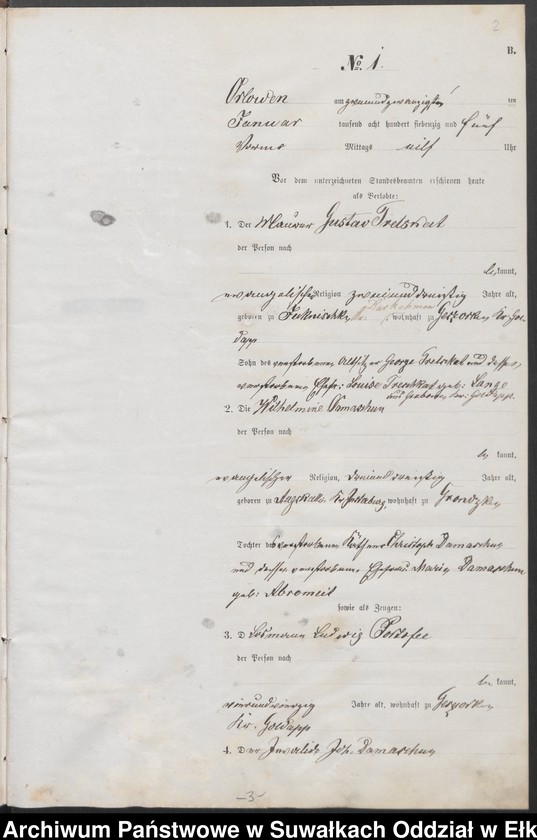 2
B.
№ 1.
Orlowen am zweiundzwanzigsten ten
Januar tausend acht hundert siebenzig und fünf
Vorms Mittags eilf Uhr
Vor dem unterzeichneten Standesbeamten erschienen heute
als Verlobte:
1. Der Maurer Gustav
der Person nach
be kannt,
evangelischer Religion zweiunddreißig Jahre alt,
geboren zu wohnhaft zu Kr. Gol
dapp
Sohn des verstorbenen Altsitzer George und dessen
verstorbenen Ehefr: Louise geb: Lange
Kr: Goldapp.
2. Die Wilhelmine Damaschun
der Person nach
be kannt,
evangelischer Religion, dreiunddreißig Jahre alt,
geboren zu Kr. Insterburg, wohnhaft zu
Tochter des verstorbenen Käthner Christoph Damaschun
und dessen verstorbene Ehefrau Marie Damaschun
geb: Abromeit
sowie als Zeugen:
3. D Losmann Ludwig
der Person nach
be kannt,
vierundvierzig Jahre alt, wohnhaft zu
Kr. Goldapp
4. Der Invalide Joh. Damaschun
-3-
Archiwum Państwowe w Suwałkach Oddział w Ełk